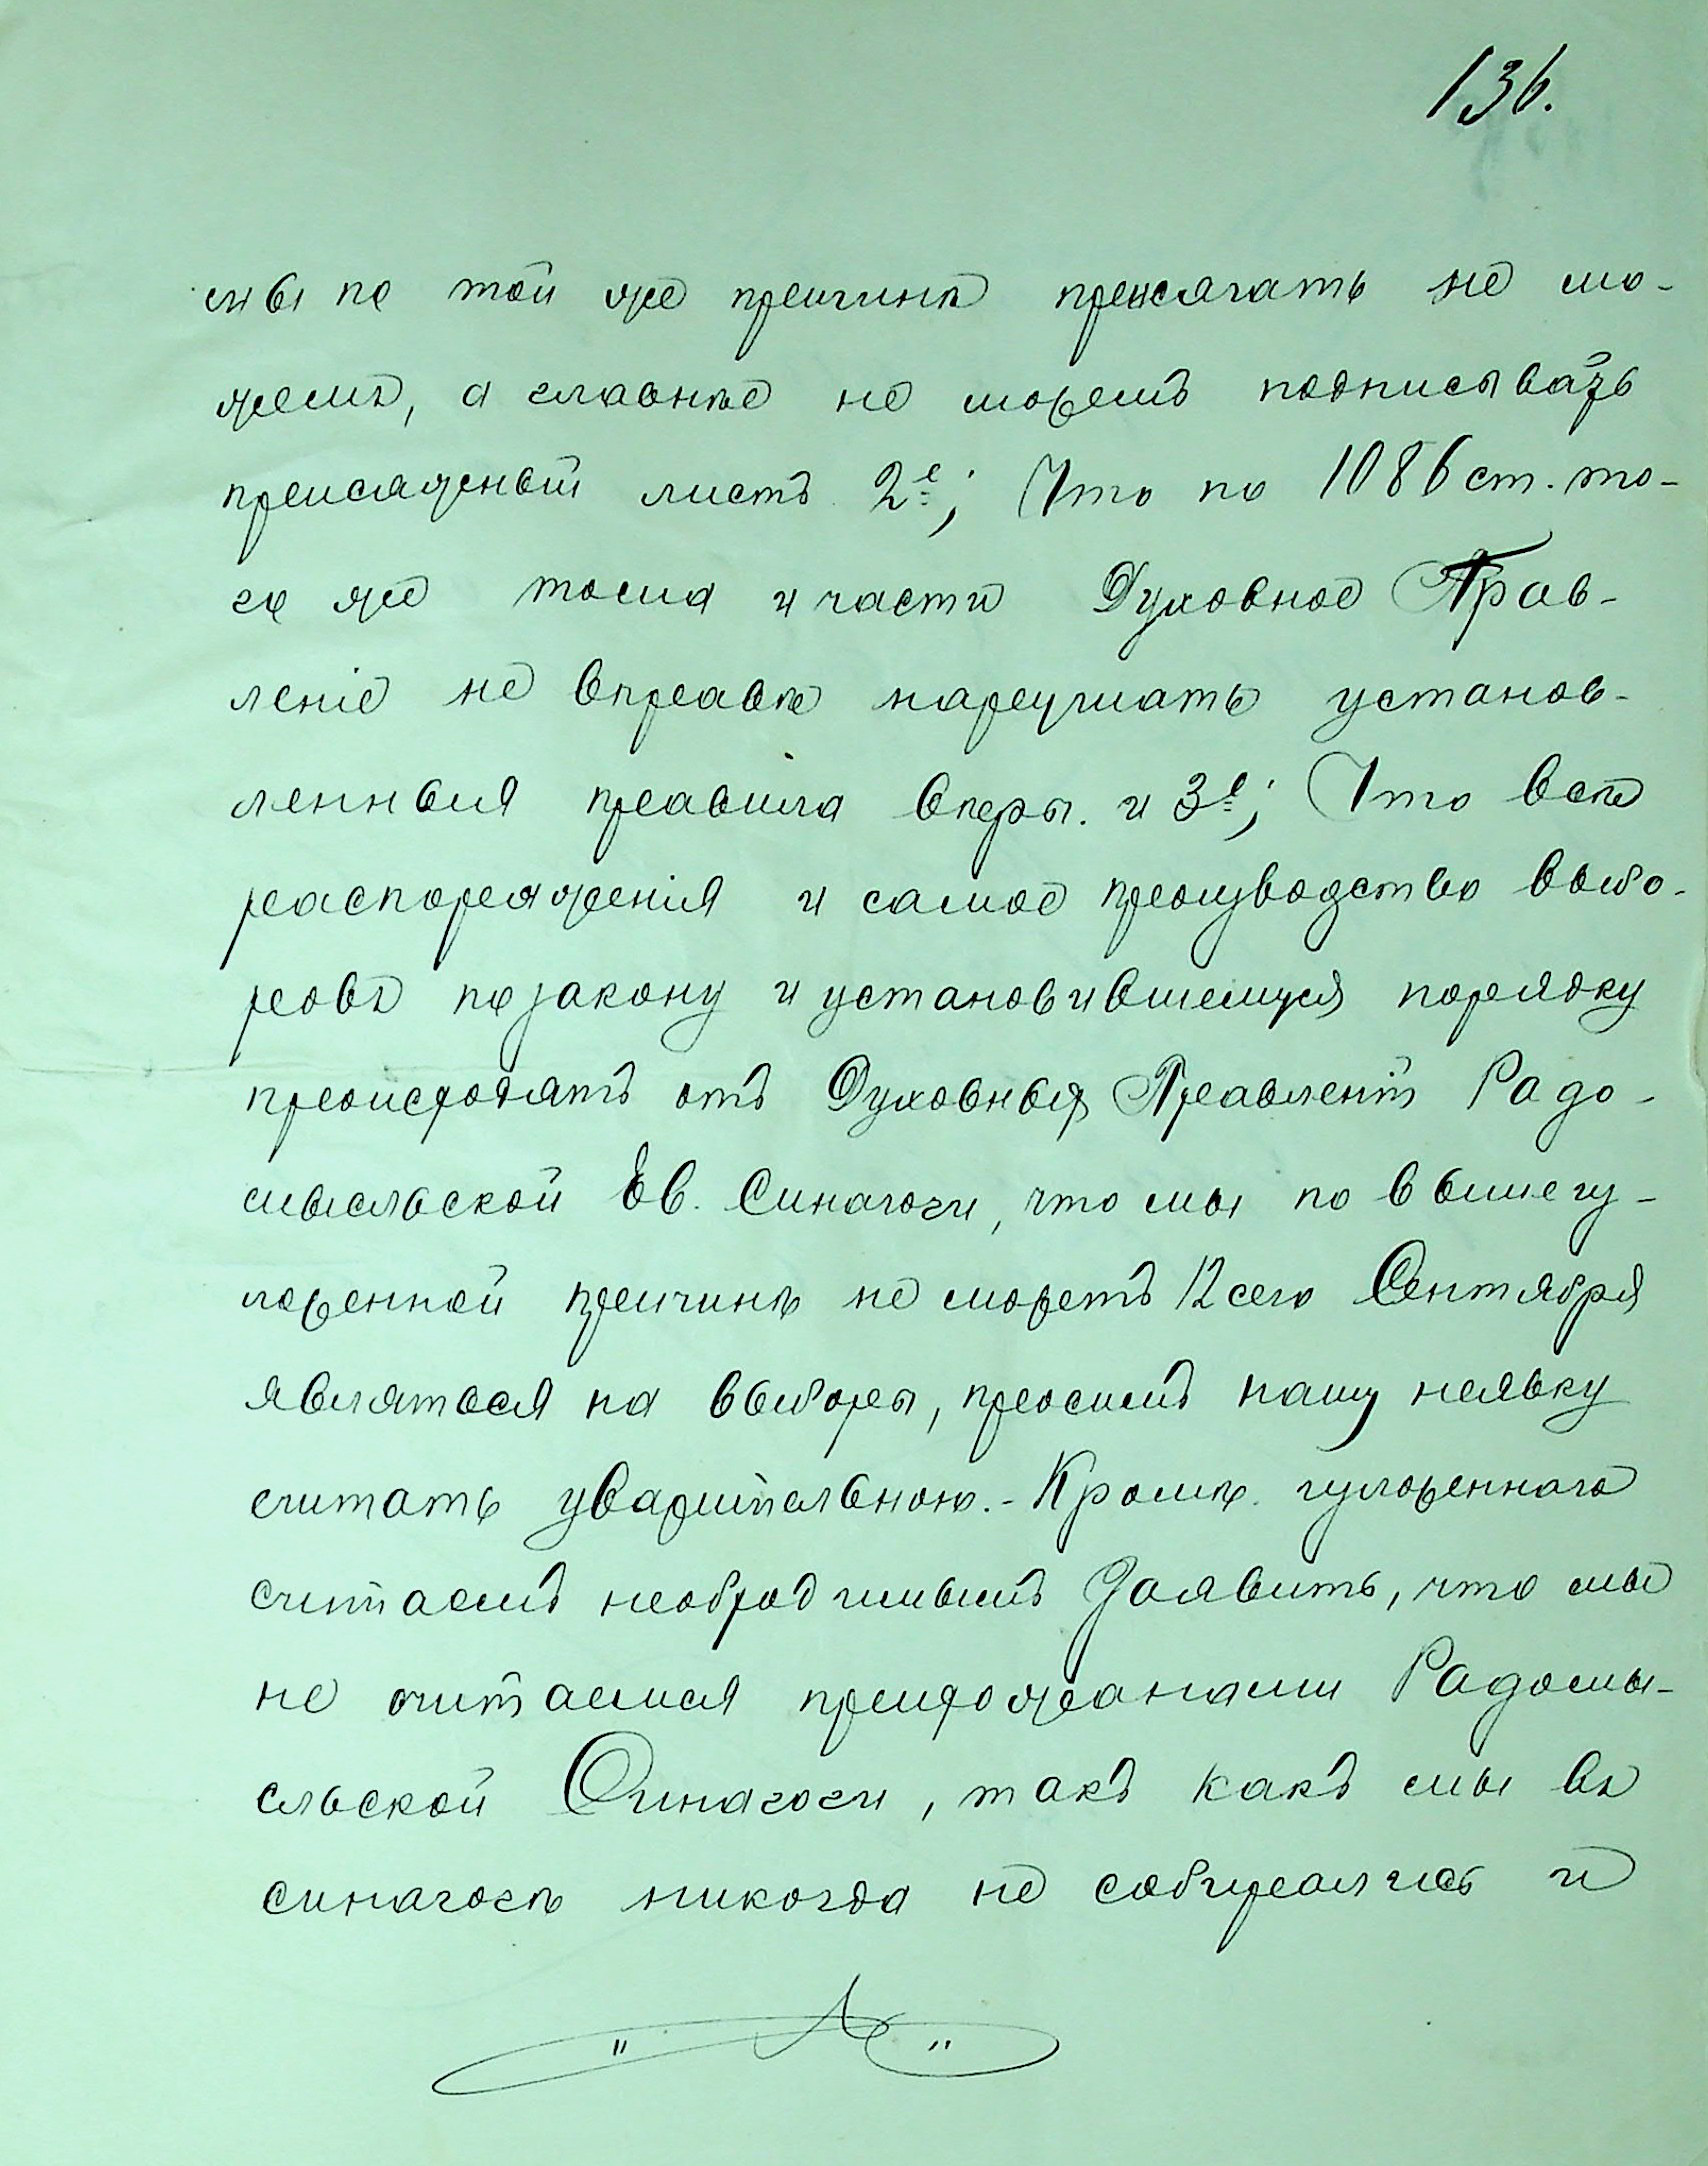 136.
мы по той же причинѣ присягать не мо-
жемъ, а главное не можемъ подписывать
присяжный листъ 2е; Что по 1086 ст. то-
го же тома и части Духовное Прав-
леніе не вправѣ нарушать установ-
ленныя правила вперы. и 3е; Что всѣ
распоряженія и самое производство выбо-
ровъ по закону и установившемуся порядку
происходятъ отъ Духовныхъ Правленій Радо-
мысльской Ев. Синагоги, что мы по вышеизу-
ложенной причинѣ не можетъ 12 сего Сентября
являться на выборы, просимъ нашу неявку
считать уважительною. - Кромѣ изложеннаго
считаемъ необходимымъ Заявить, что мы
не считаемся прихожанами Радомы-
сльской Синагоги, такъ какъ мы въ
синагогѣ никогда не собирались и